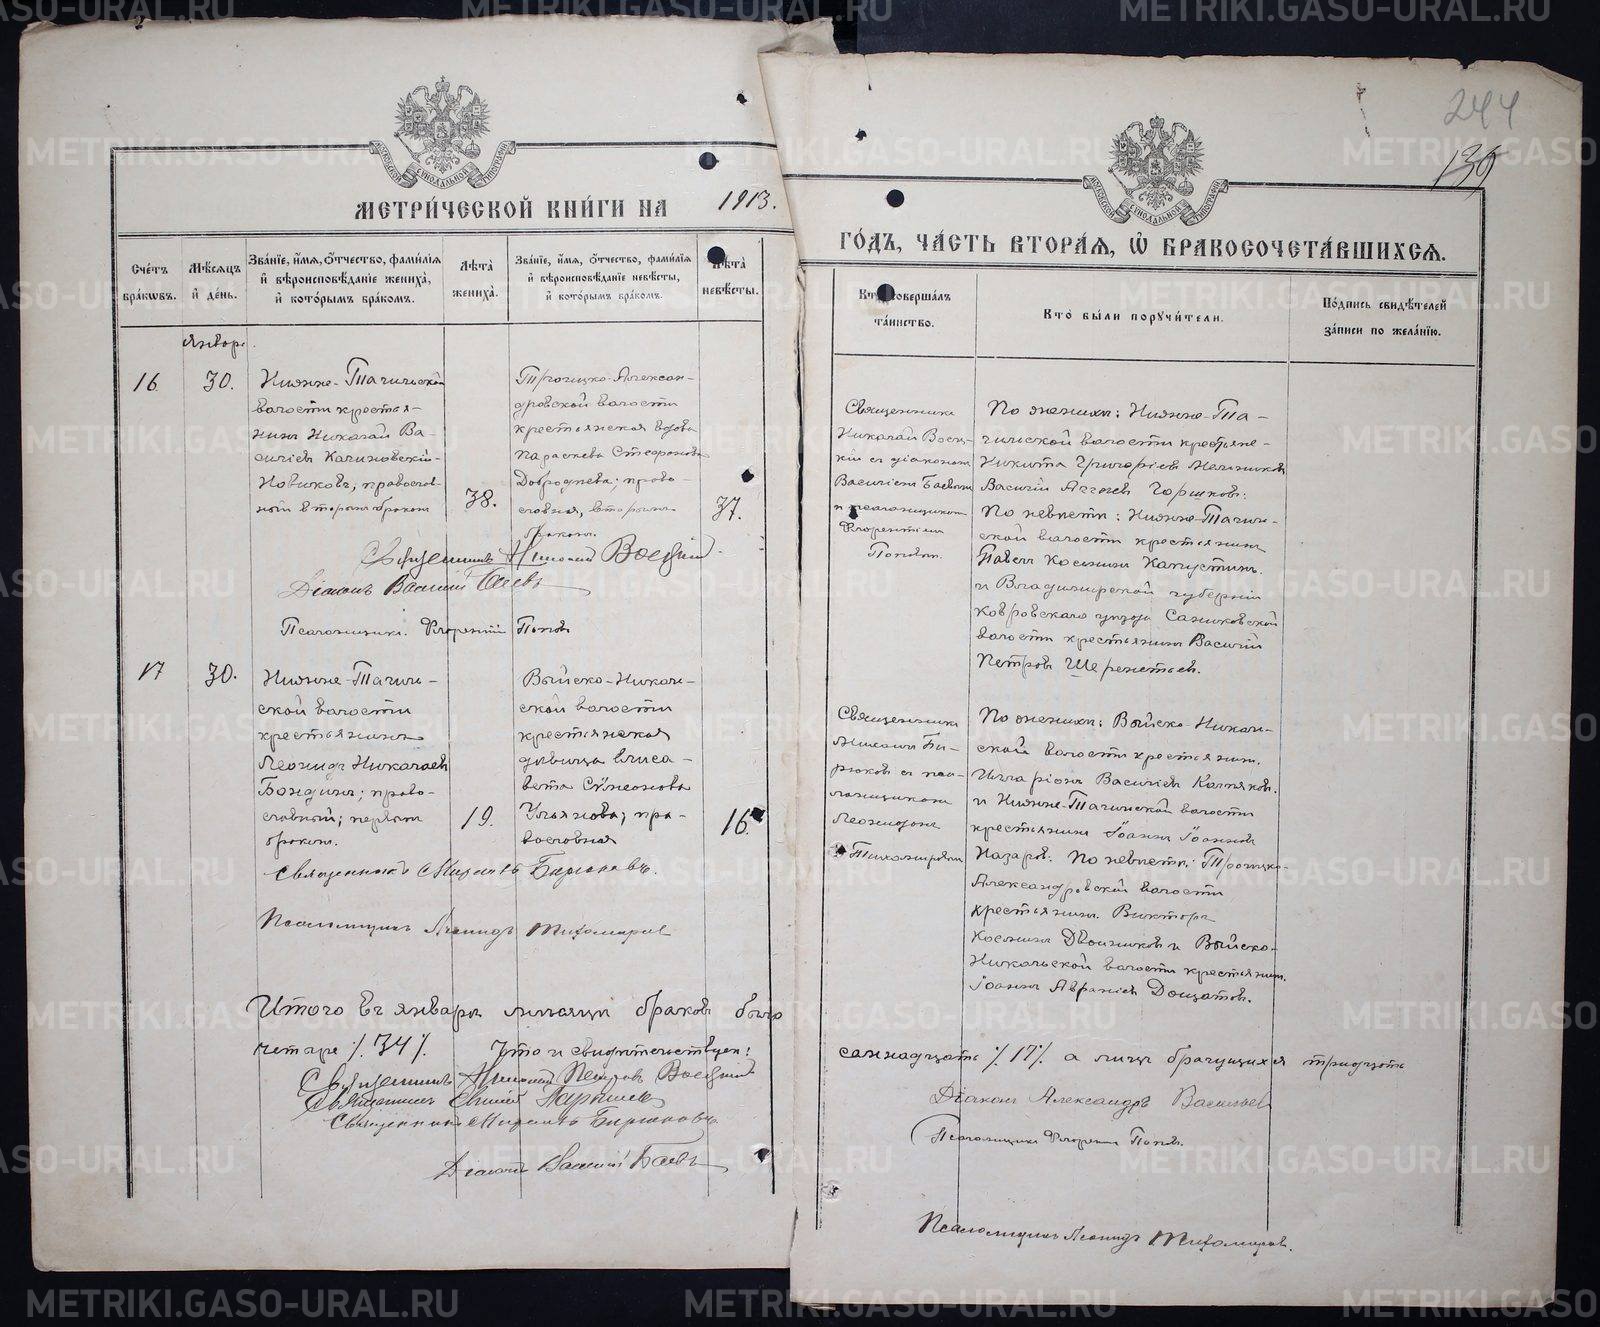 МЕТРИ́ЧЕСКОЙ КНИ́ГИ НА 1913.
Сче́тъ бра́кѡвъ.
Мѣ́сяцъ и҆ де́нь.
Зва́нїе, и҆́мя, ѻ҆́тчество, фами́лїя и҆ вѣроисповѣ́данїе жениха̀, и҆ кото́рымъ бра́комъ.
Лѣ́та жениха̀.
Зва́нїе, и҆́мя, ѻ҆́тчество, фами́лїя и҆ вѣроисповѣ́данїе невѣ́сты, и҆ кото́рымъ бра́комъ.
Лѣ́та невѣ́сты.
Январь.
16
30.
Нижне-Тагильской
волости крестья-
нинъ Николай Ва-
сильевъ Калиновскій-
Новиковъ, православ-
ный вторымъ бракомъ
38.
Троицко-Алексан-
дровской волости
крестьянская вдова
Параскева Стефанова
Добродеева; право-
славная, вторымъ
бракомъ.
37.
Священникъ Николай Воецкій.
Діаконъ Василій Баевъ
Псаломщикъ Флорентій Поповъ
17
30.
Нижне-Тагиль-
ской волости
крестьянинъ
Леонидъ Николаевъ
Бондинъ; право-
славный; первымъ
бракомъ.
19.
Выйско-Николь-
ской волости
крестьянская
дѣвица Елиса-
вета Сѵмеонова
Ульянова; пра-
вославная
16.
Священникъ Бирюковъ.
Псаломщикъ Леонидъ Тихомировъ
Итого въ январѣ мѣсяцѣ браковъ было
четыре /. 34 /. Что и свидѣтельствуемъ:
Священникъ Николай Петровъ Воецкій
Священникъ
Священникъ Бирюковъ.
Діаконъ Василій Баевъ
244
139
ГО́ДЪ, ЧА́СТЬ ВТОРА́Я, Ѡ҆ БРАКОСОЧЕТА́ВШИХСЯ.
Кто̀ соверша́лъ та́инство.
Кто̀ бы́ли порꙋчи́тели.
По́дпись свидѣ́телей за́писи по жела́нїю.
Священникъ
Николай Воец-
кій съ діакономъ
Василіемъ Баевымъ
и псаломщикомъ
Флорентіемъ
Поповымъ.
По женихѣ: Нижне-Та-
гильской волости крестьяне-
Никита Григорьевъ Мельниковъ
Василій Аггеевъ Горшковъ:
По невѣстѣ: Нижне-Тагиль-
ской волости крестьянинъ
Павелъ Косминъ Капустинъ.
и Владимирской губерніи
Ковровскаго уѣзда Санниковской
волости крестьянинъ Василій
Петровъ Шереметьевъ.
Священникъ
Бирюковъ съ пса-
ломщикомъ
Леонидомъ
Тихомировымъ
По женихѣ: Выйско-Николь-
ской волости крестьянинъ.
Илларіонъ Василіевъ Колпаковъ.
и Нижне-Тагильской волости
крестьянинъ Іоаннъ Іоанновъ
Назаровъ. По невѣстѣ: Троицко-
Александровской волости
крестьянинъ Викторъ
Косминъ Двойниковъ и Выйско-
Никольской волости крестьянинъ.
Іоаннъ Авраміевъ Дощатовъ.
семнадцать /. 17 /. а лицъ брачущихся тридцать
Діаконъ Александръ Васильевъ
Псаломщикъ Флорентій Поповъ.
Псаломщикъ Леонидъ Тихомировъ.
METRIKI.GASO-URAL.RU